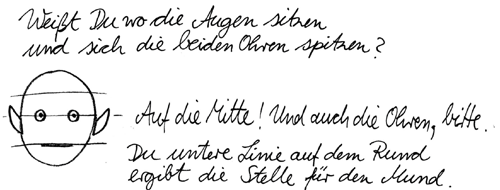 Weißt Du wo die Augen sitzen
und sich die beiden Ohren spitzen?
Auf die Mitte! Und auch die Ohren, bitte.
Du untere Linie auf dem Rund
ergibt die Stelle für den Mund.